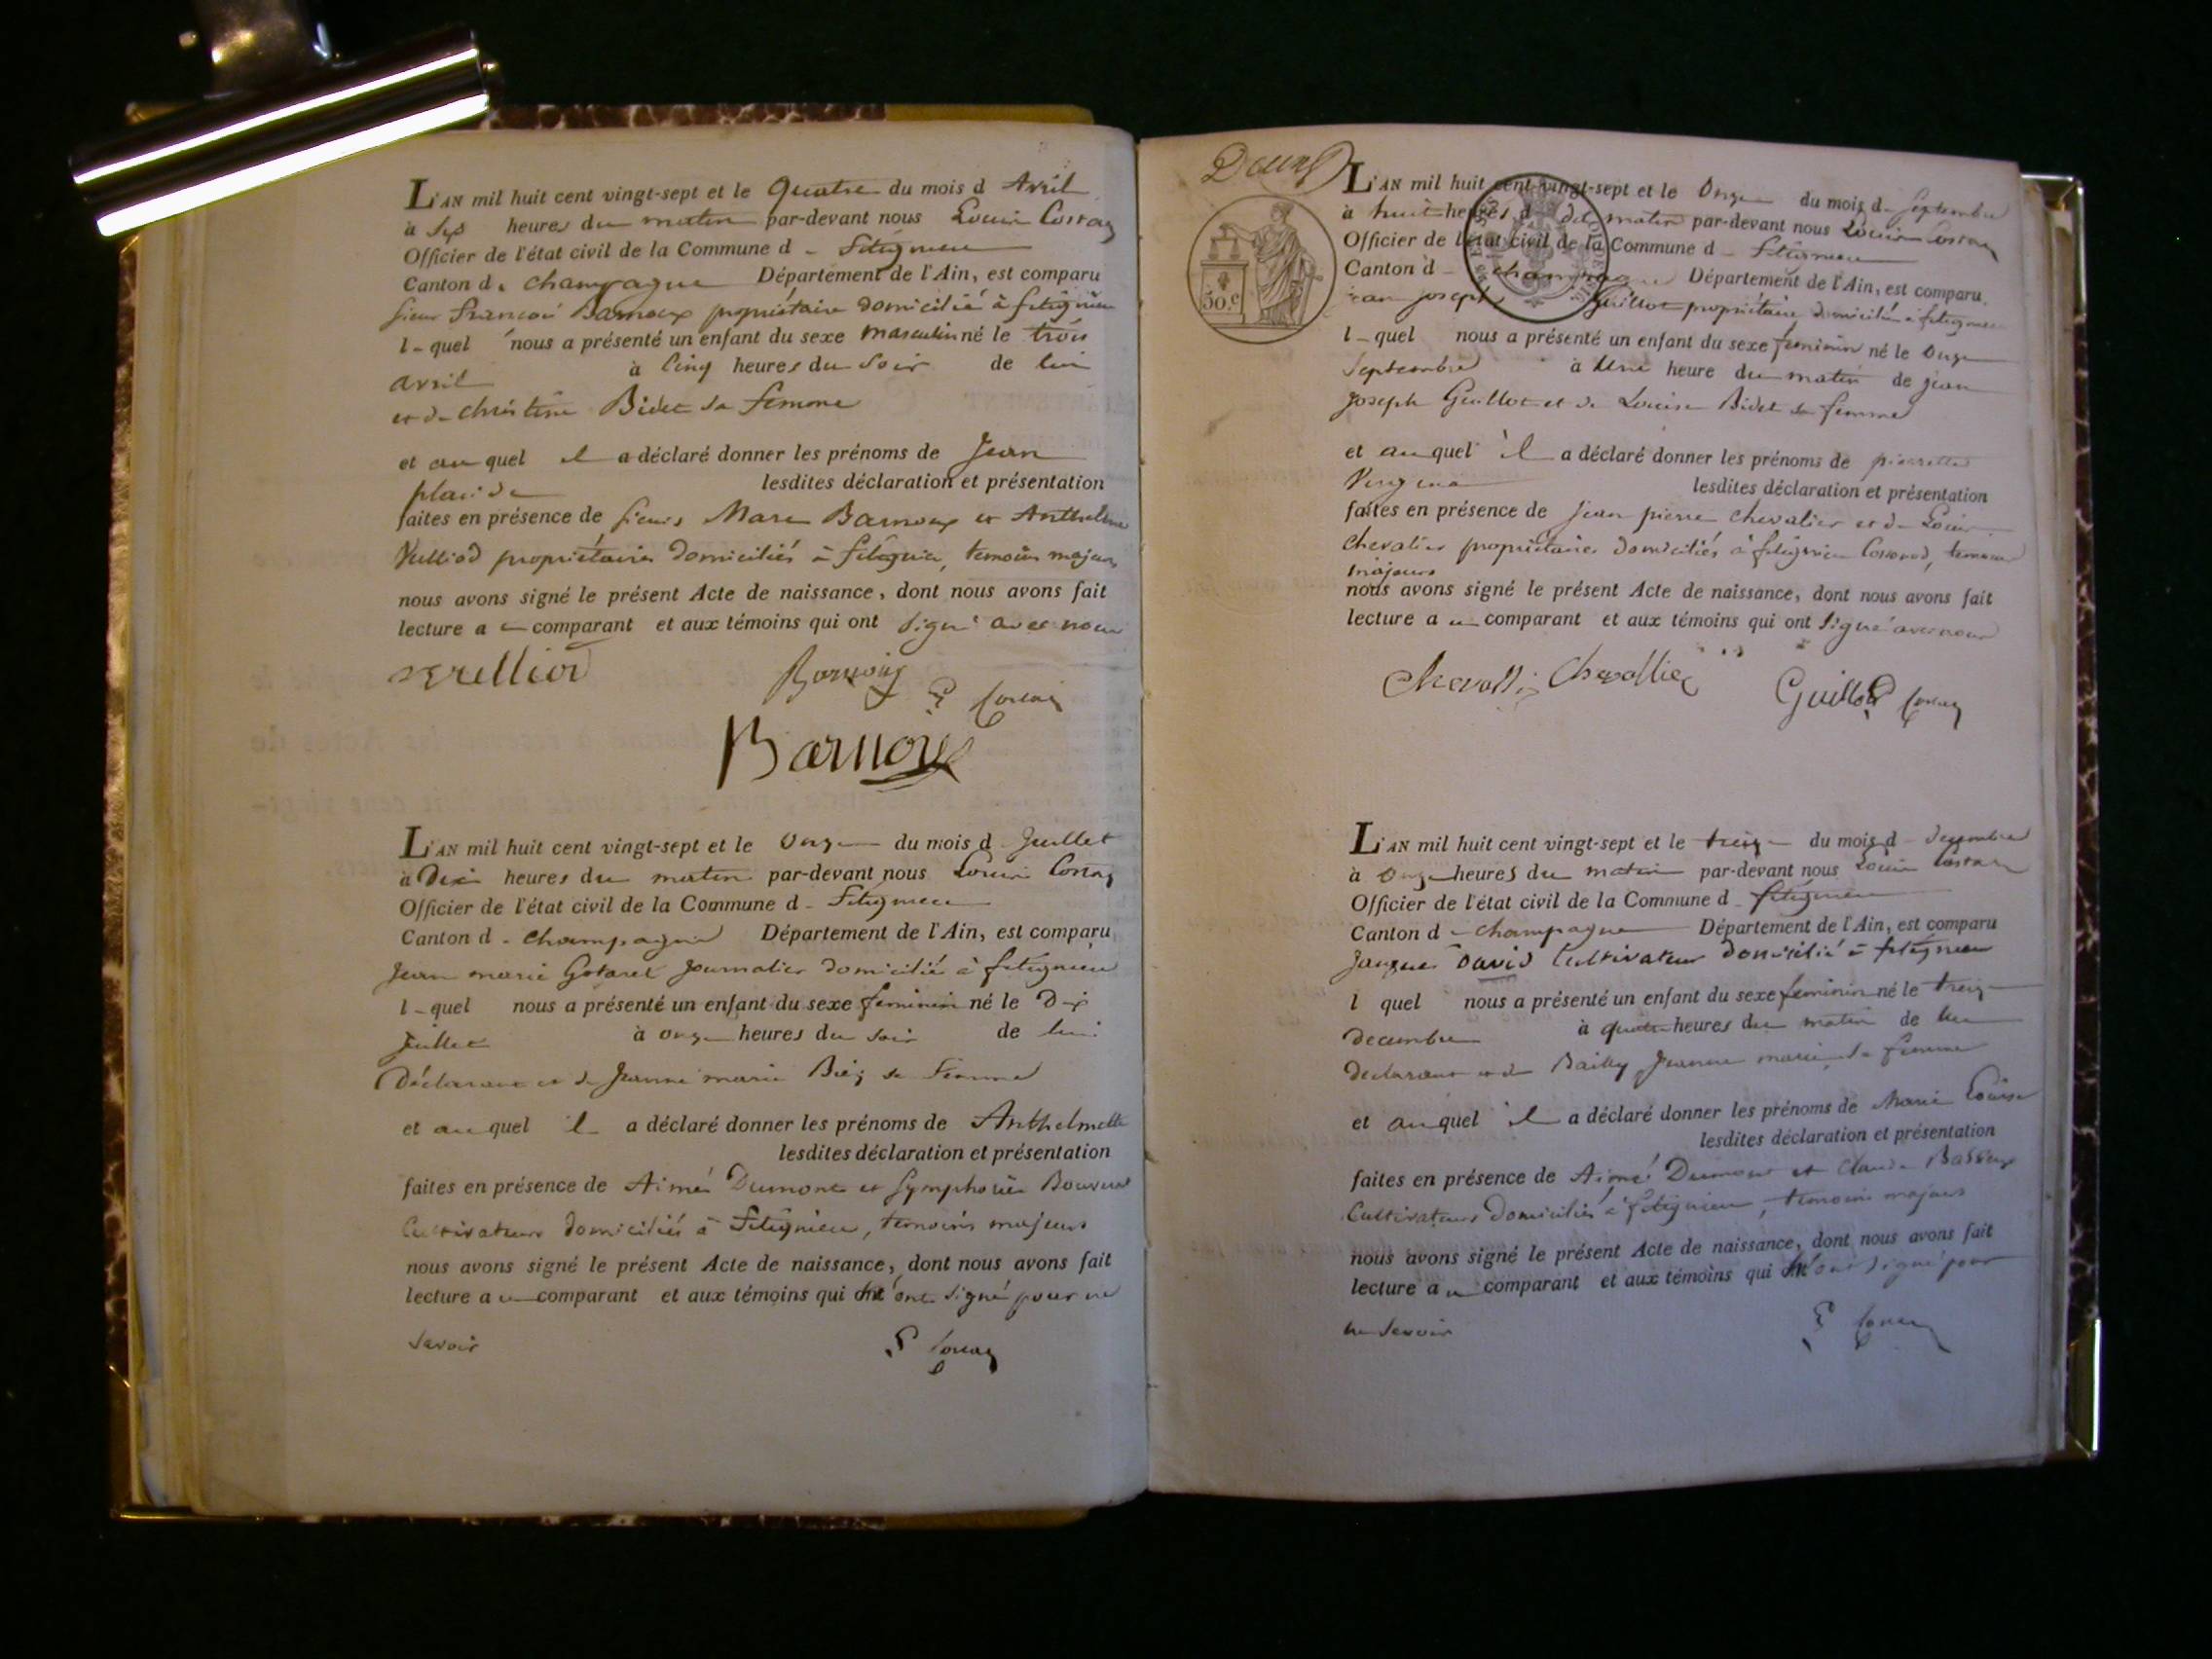 L'AN mil huit cent vingt-sept et le Quatre du mois d Avril
à Sep heures du matin par-devant nous Louis Costaz
Officier de l'état civil de la Commune d - fitignieu
Canton d. champagne Département de l'Ain, est comparu
sieur françois Barnoux propriétaire domicilié à fitignieu
l-quel nous a présenté un enfant du sexe masculin né le trois
avril à cinq heures du soir de lui
et de christine Bidet sa femme
et au quel il a déclaré donner les prénoms de Jean
placide lesdites déclaration et présentation
faites en présence de sieurs Marc Barnoux et Anthelme
Vulliod propriétaires domiciliés à fitignieu, temoins majeurs
nous avons signé le présent Acte de naissance, dont nous avons fait
lecture a u comparant et aux témoins qui ont signé avec nous
Barnoux
L Costaz
Barnoux
L'AN mil huit cent vingt-sept et le Onze du mois d Juillet
à Dix heures du matin par-devant nous Louis Costaz
Officier de l'état civil de la Commune d - fitignieu
Canton d - champagne Département de l'Ain, est comparu
Jean marie Gotaret Journalier domicilié à fitignieu
l-quel nous a présenté un enfant du sexe feminin né le Dix
Juillet à onze heures du soir de lui
Déclarant et de Jeanne marie sa femme
et au quel il a déclaré donner les prénoms de Anthelmette
lesdites déclaration et présentation
faites en présence de Aimé Dumont et Symphorien
Cultivateurs domiciliés à fitignieu, temoins majeurs
nous avons signé le présent Acte de naissance, dont nous avons fait
lecture a u comparant et aux témoins qui n'ont signé pour ne
savoir
L Costaz
30.c
L'AN mil huit cent vingt-sept et le Onze du mois d- septembre
à huit heures du matin par-devant nous Louis Costaz
Officier de l'état civil de la Commune d - fitignieu
Canton d - champagne Département de l'Ain, est comparu
jean joseph Guillot propriétaire domicilié à fitignieu
l-quel nous a présenté un enfant du sexe feminin né le onze
septembre à une heure du matin de jean
joseph Guillot et de Louise Bidet sa femme
et au quel il a déclaré donner les prénoms de pierrette
Virginie lesdites déclaration et présentation
faites en présence de jean pierre chevalier et de Louis
chevalier propriétaires domiciliés à fitignieu temoins
majeurs
nous avons signé le présent Acte de naissance, dont nous avons fait
lecture a u comparant et aux témoins qui ont signé avec nous
Chevallier Chevallier Guillot L Costaz
L'AN mil huit cent vingt-sept et le treize du mois d - decembre
à onze heures du matin par-devant nous Louis Costaz
Officier de l'état civil de la Commune d - fitignieu
Canton d - champagne Département de l'Ain, est comparu
Jacques David Cultivateur domicilié à fitignieu
l quel nous a présenté un enfant du sexe feminin né le treize
decembre à quatre heures du matin de lui
declarant et de Bailly Jeanne marie sa femme
et au quel il a déclaré donner les prénoms de Marie Louise
lesdites déclaration et présentation
faites en présence de Aimé Dumont et Claude
Cultivateurs domiciliés à fitignieu, temoins majeurs
nous avons signé le présent Acte de naissance, dont nous avons fait
lecture a u comparant et aux témoins qui n'ont signé pour
ne savoir
L Costaz